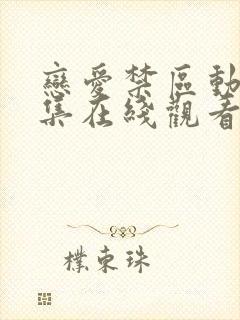 戀愛禁區動
集在綫觀看
樸東珠